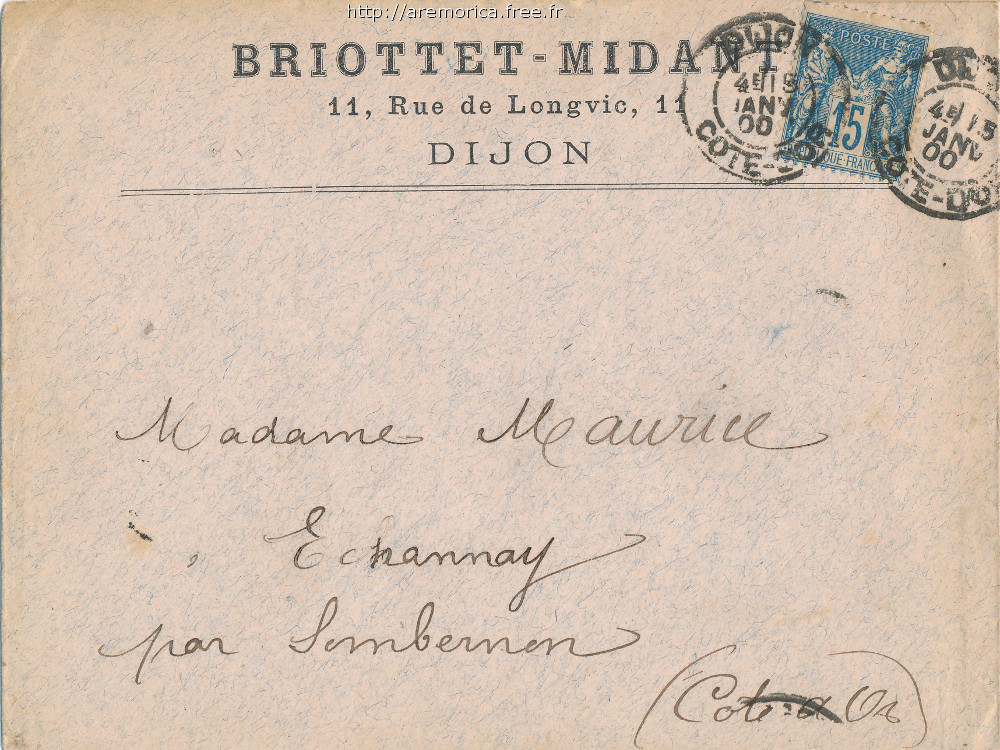 http://aremorica.free.fr
BRIOTTET-MIDANT
11, Rue de Longvic, 11
DIJON
DIJON
4E/15
JANV
00
COTE-D'OR
POSTE
15
QUE-FRANC
DIJ
4E/15
JANV
00
COTE-D'O
Madame Maurice
Echannay
par Sombernon
(Cote-d'Or)